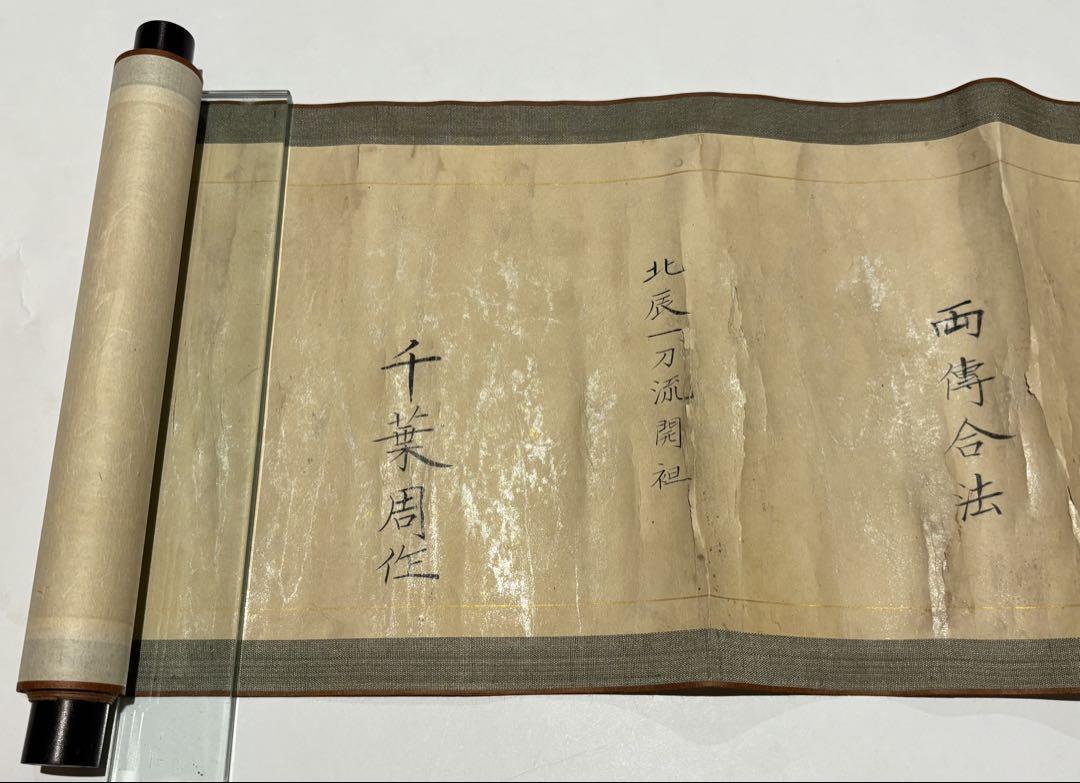 両傳合法
北辰一刀流開袒
千葉周作